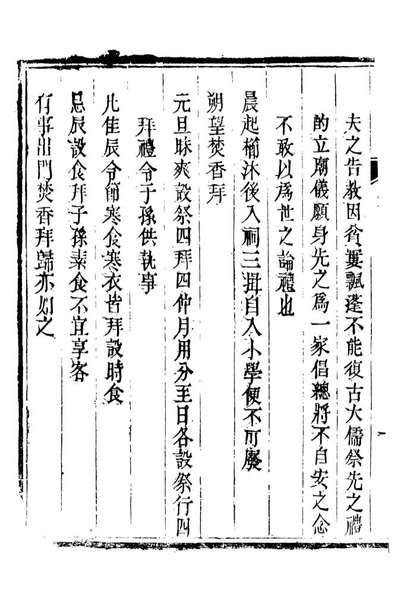 夫之告教因貧窶飄蓬不能復古大儒祭先之禮
酌立廟儀願身先之爲一家倡總將不自安之念
不敢以爲世之論禮也
晨起櫛沐後入祠三揖自入小學便不可廢
朔望焚香拜
元旦昧爽設祭四拜四仲月用分至日各設祭行四
拜禮令子孫供執事
凡佳辰令節寒食寒衣皆拜設時食
忌辰設食拜子孫素食不宜享客
有事出門焚香拜歸亦如之